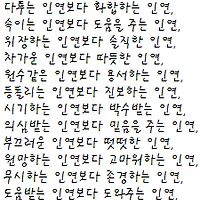 다투는 인연보다 화합하는 인연,
속이는 인연보다 도움을 주는 인연,
위장하는 인연보다 솔직한 인연,
차가운 인연보다 따뜻한 인연,
원수같은 인연보다 용서하는 인연,
등돌리는 인연보다 진보하는 인연,
시기하는 인연보다 박수받는 인연,
의심받는 인연보다 믿음을 주는 인연,
부끄러운 인연보다 떳떳한 인연,
원망하는 인연보다 고마워하는 인연,
무시하는 인연보다 존경하는 인연,
도움받는 인연보다 도와주는 인연,